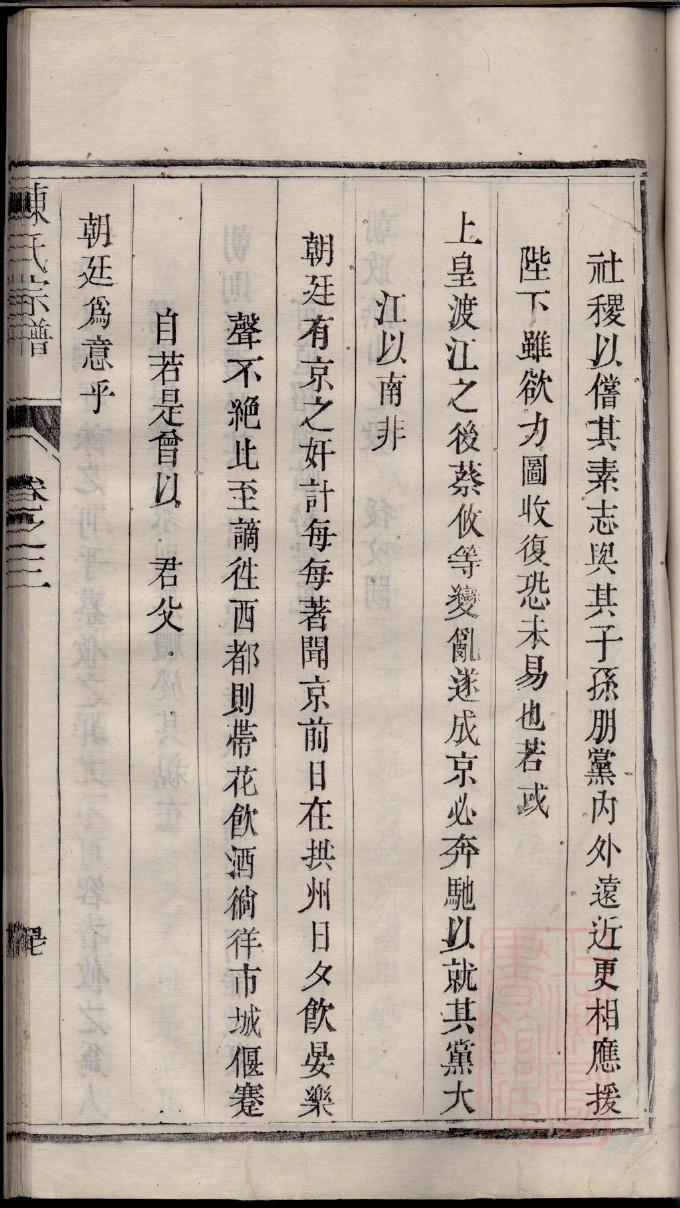 社稷以僃其素志與其子孫朋黨内外遠近更相應援
陛下雖欲力圖收復恐未易也若或
上皇渡江之後蔡攸等變亂遂成京必奔馳以就其黨大
江以南非
朝廷有京之奸計每每著聞京前日在拱州日夕飲晏樂
聲不絶比至謫徃西都則帶花飲酒徜徉市城偃蹇
自若是曾以 君父
朝廷爲意乎
陳氏宗譜 卷之三